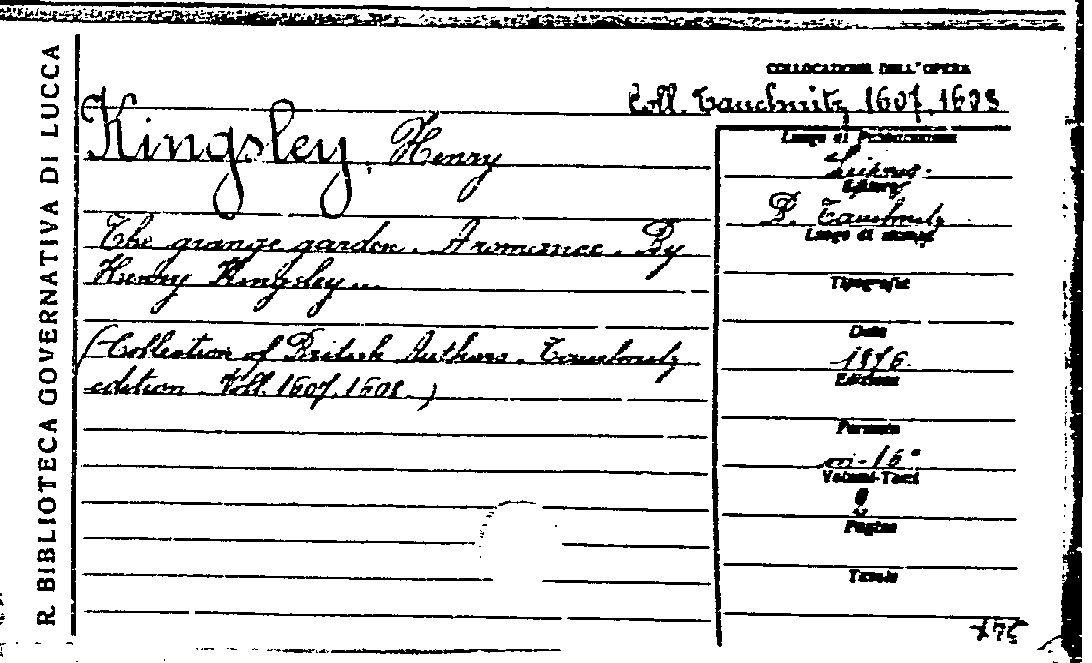 R. BIBLIOTECA GOVERNATIVA DI LUCCA
COLLOCAZIONE DELL'OPERA
Coll. Tauchnitz 1607, 1608
Kingsley, Henry
The grange garden. A romance. By
Henry Kingsley...
(Collection of British Authors. Tauchnitz
edition. Voll. 1607, 1608.)
Luogo di Pubblicazione
Leipzig.
Editore
B. Tauchnitz
Luogo di stampa
Tipografia
Data
1876.
Edizione
Formato
in-16°
Volumi-Tomi
Pagine
Tavole